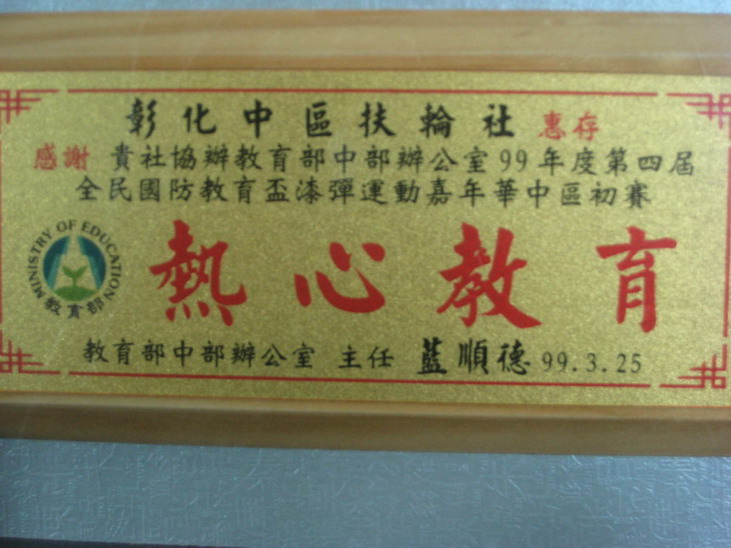 彰化中區扶輪社 惠存
感謝 貴社協辦教育部中部辦公室99年度第四屆
全民國防教育盃漆彈運動嘉年華中區初賽
MINISTRY OF EDUCATION
教育部
熱心教育
教育部中部辦公室 主任 藍順德 99.3.25